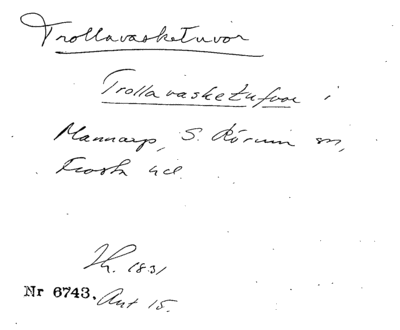 Trollavasketuvor
Trollavasketufvor i
Mannarp, S. Rörum sn,
Frosta hd.
Th. 1831
Nr 6743. Ant 15.